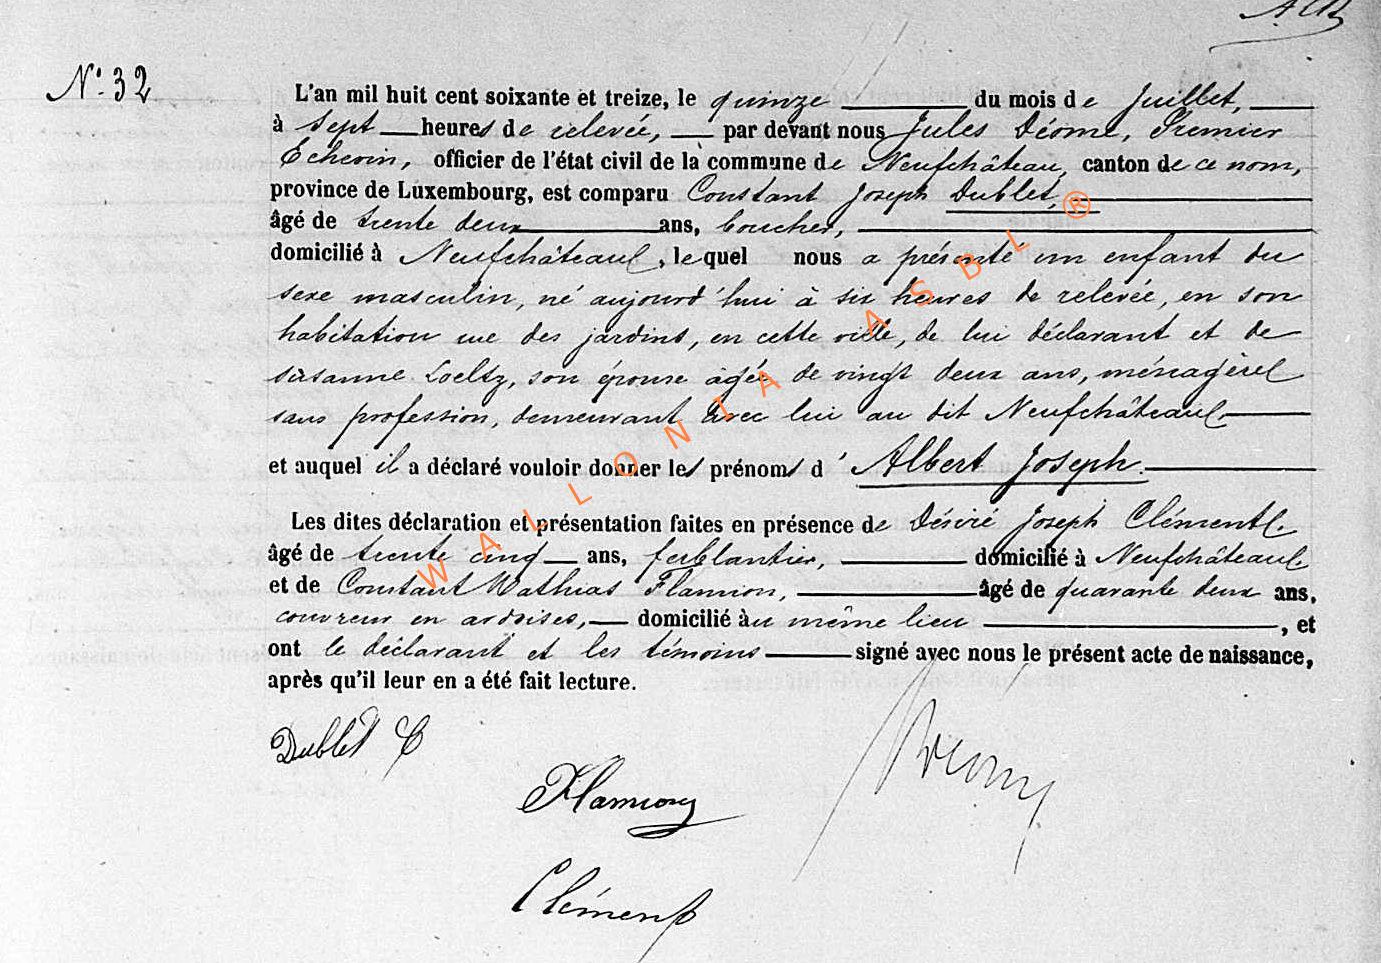 N° 32
L'an mil huit cent soixante et treize, le quinze du mois de Juillet,
à sept heures de relevée, par devant nous Jules Déome, Premier
Echevin, officier de l'état civil de la commune de Neufchâteau, canton de ce nom,
province de Luxembourg, est comparu Constant Joseph Dublet,
âgé de trente deux ans, boucher,
domicilié à Neufchâteau, lequel nous a présenté un enfant du
sexe masculin, né aujourd'hui à six heures de relevée, en son
habitation rue des jardins, en cette ville, de lui déclarant et de
susanne Loeltz, son épouse âgée de vingt deux ans, ménagère
sans profession, demeurant avec lui au dit Neufchâteau
et auquel il a déclaré vouloir donner les prénoms d'Albert Joseph.
Les dites déclaration et présentation faites en présence de Désiré Joseph Clément
âgé de trente cinq ans, ferblantier, domicilié à Neufchâteau
et de Constant Mathias Flamion, âgé de quarante deux ans,
couvreur en ardoises, domicilié au même lieu, et
ont le déclarant et les témoins signé avec nous le présent acte de naissance,
après qu'il leur en a été fait lecture.
Dublet C
Flamion
Clément
WALLONIA ASBL ®